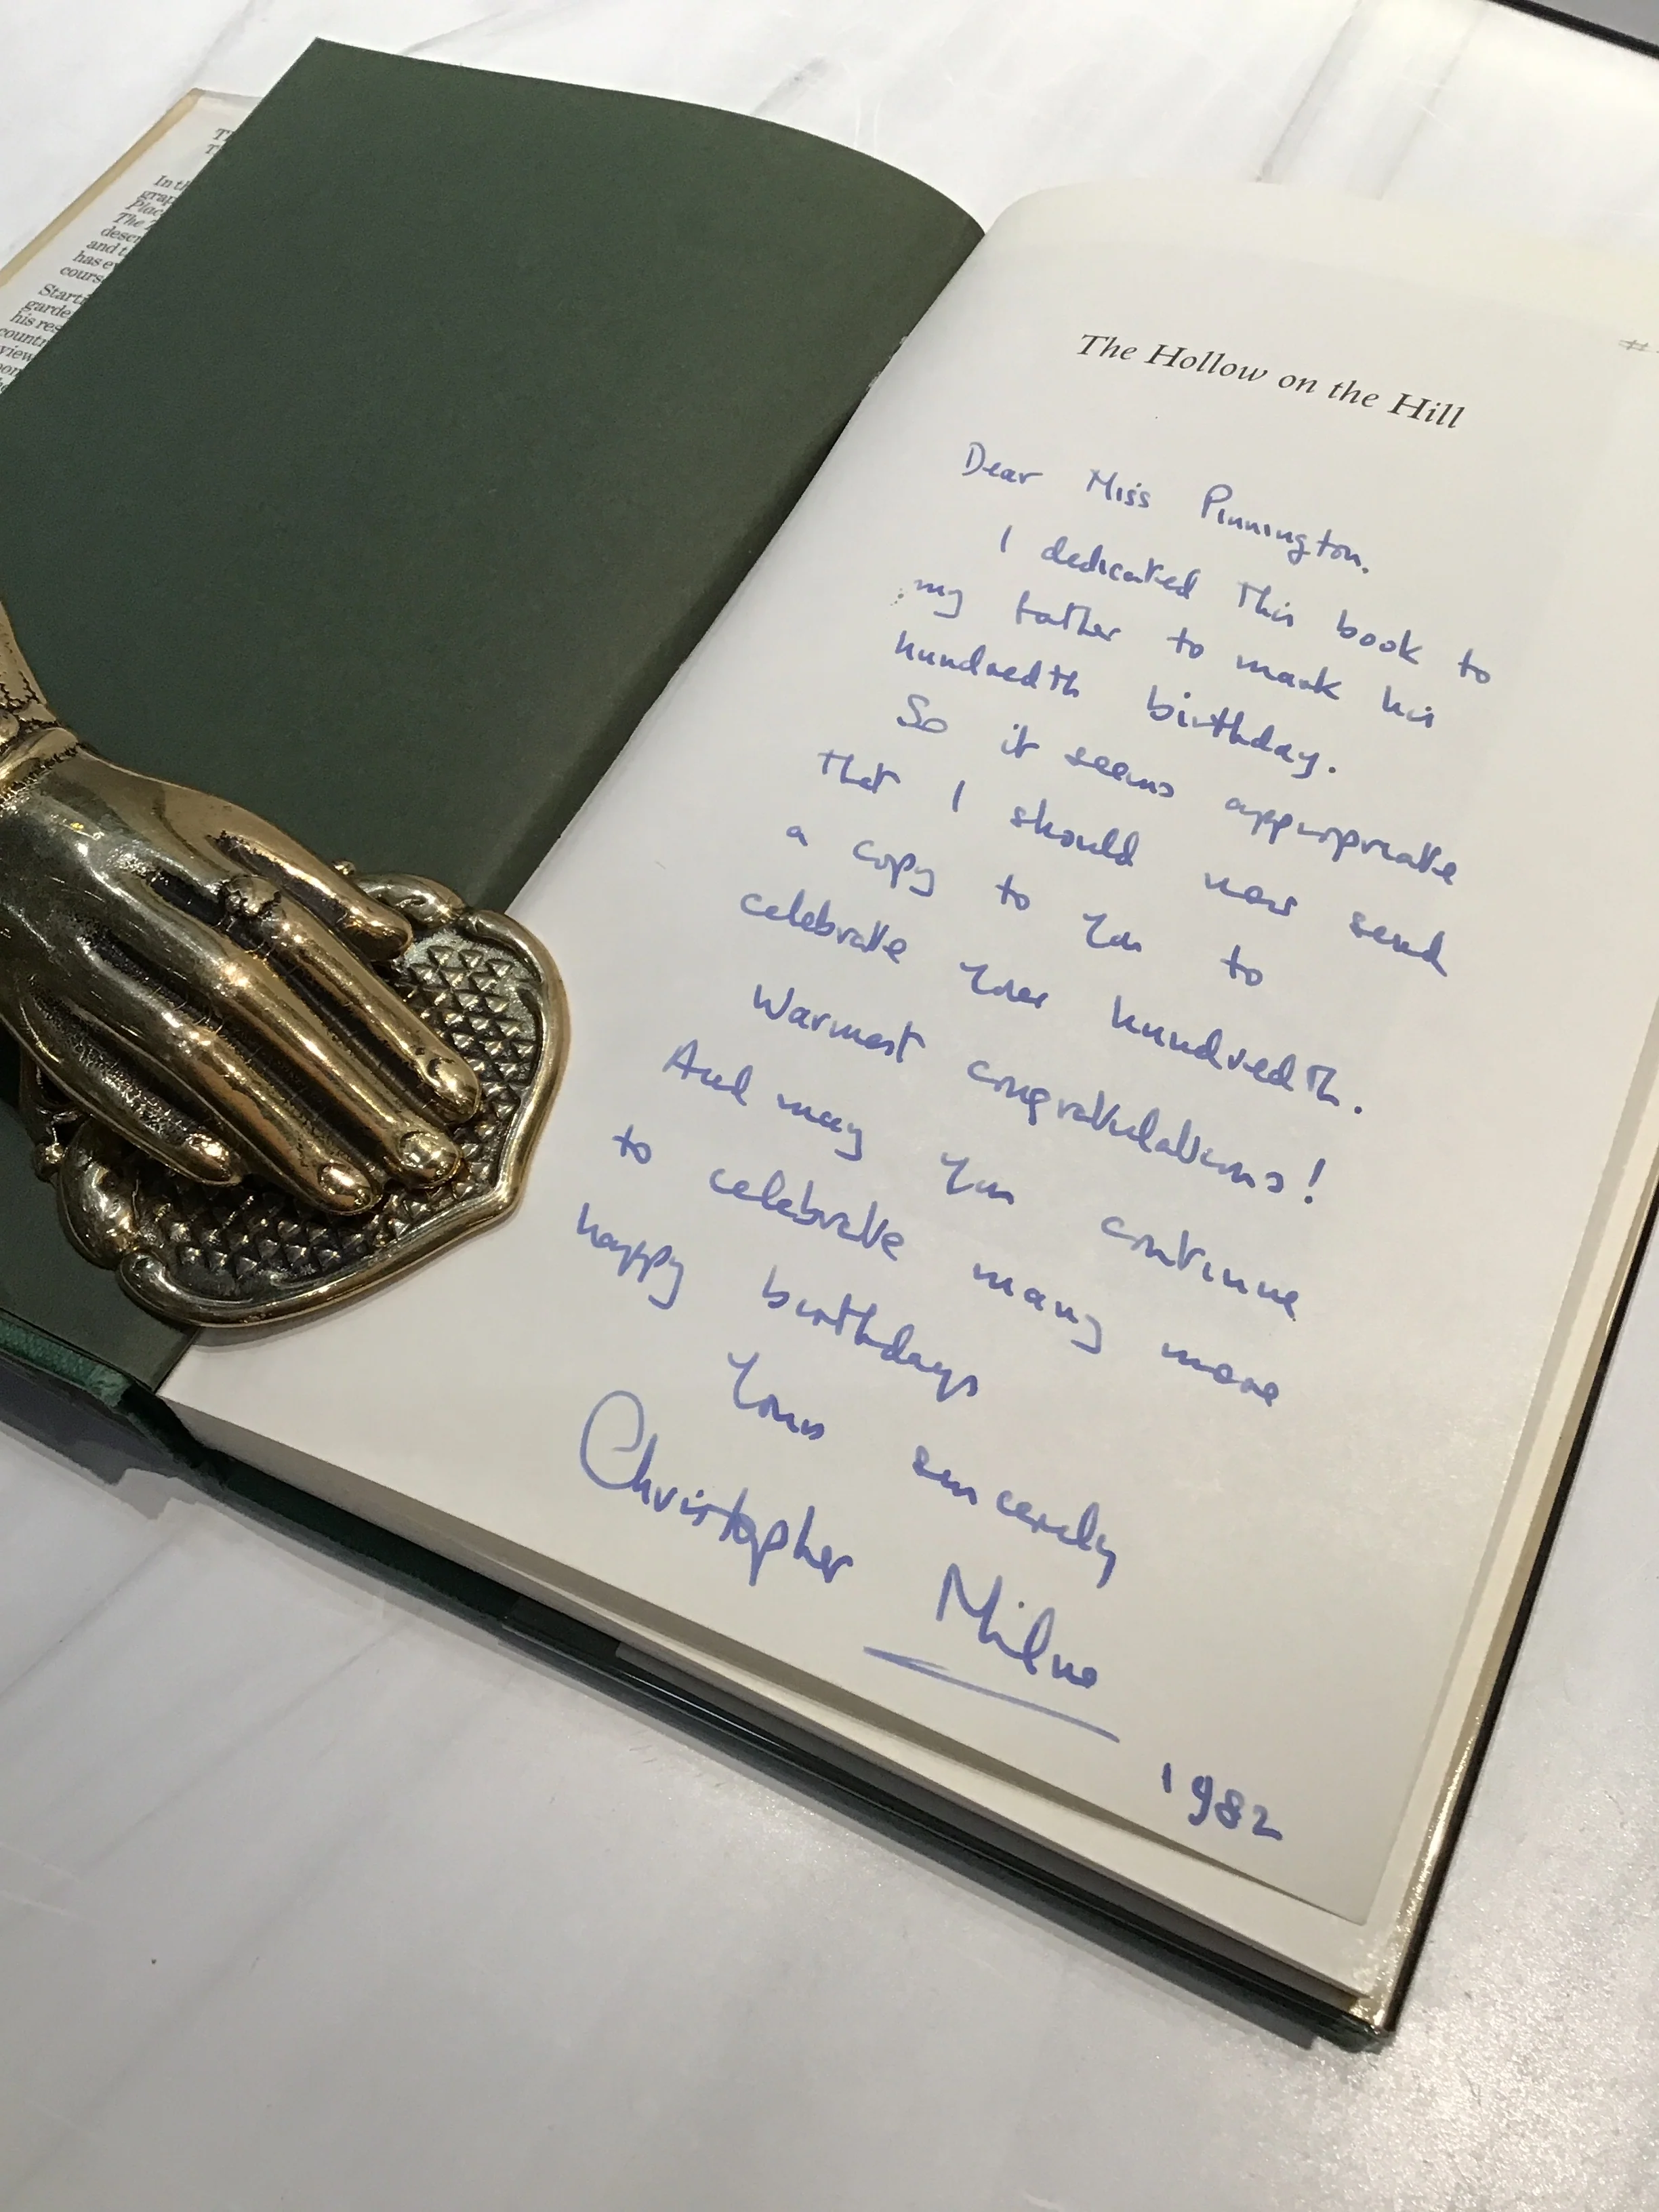 In th
grap
Plac
The
descr
and t
has e
cours
Starti
garde
his res
countr
view
The Hollow on the Hill
Dear Miss Pinnington.
I dedicated this book to
my father to mark his
hundredth birthday.
So it seems appropriate
that I should now send
a copy to you to
celebrate your hundredth.
Warmest congratulations!
And may you continue
to celebrate many more
happy birthdays
Yours sincerely
Christopher Milne
1982